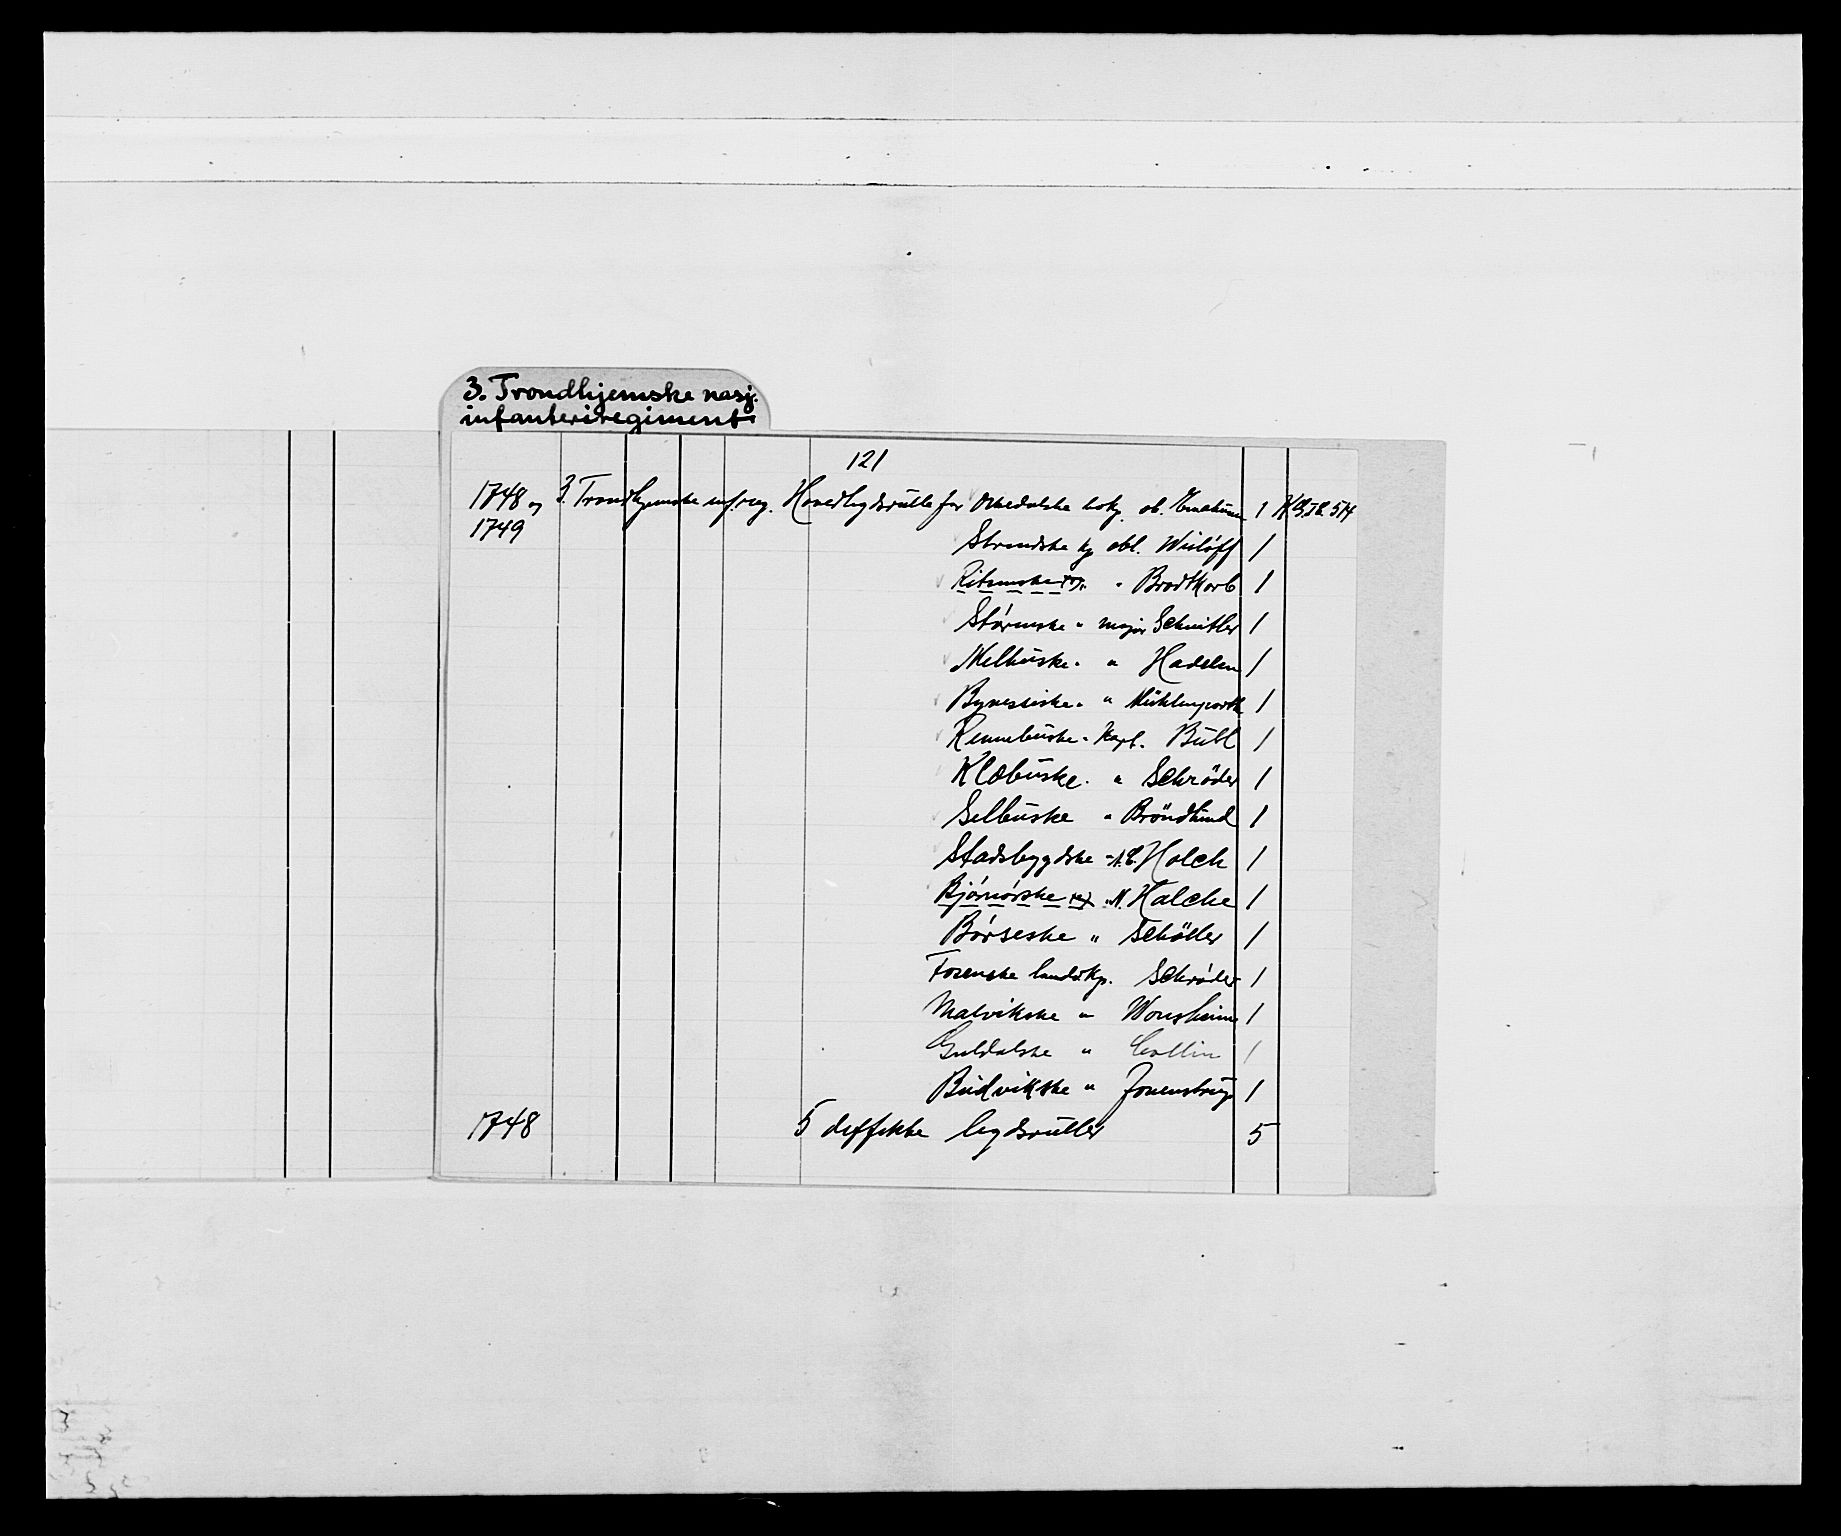 3. Trondhjemske nasj.
infanteriregiment
121
1748 og 3. Trondhjemske inf.reg. Hovedlegdsrulle for Orkedalske kp. ob. 1
1749
Strindske kp obl. 1
Ritsemske kp. " Brodtkorb 1
Störenske " major Schnitler 1
Melhuske " " Hadelen 1
Bynesseske " " Mühlenporth 1
Rennebuske " Kapt. Bull 1
Klæbuske " " Schröder 1
Selbuske " Bröndlund 1
Stadsbygdske " Holck 1
Bjórnórske kp " N. Halcke 1
Börseske " Schöller 1
Fosenske landv.kp. Schröder 1
Malvikske " Wonsheim 1
Guldalske " Collin 1
Budvikske " Jonenstrup 1
1748 5 deffekte legdsruller 5